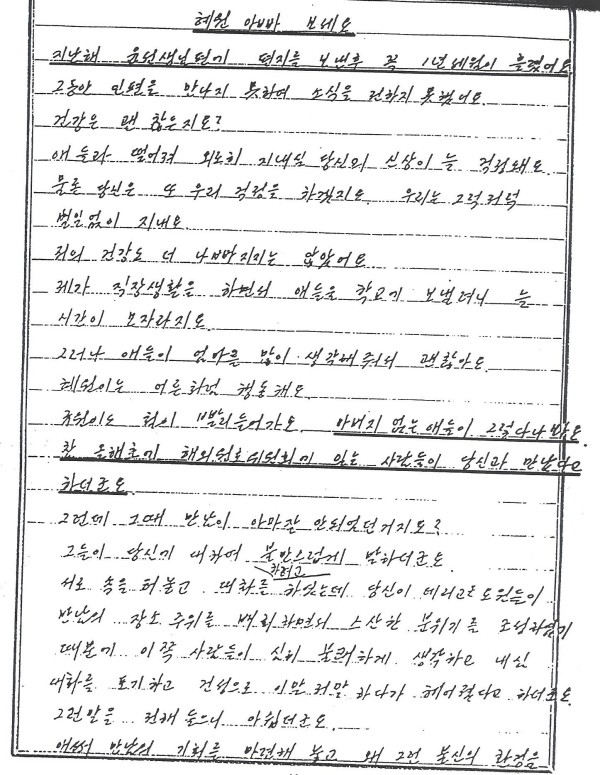 혜원 아빠 보세요
지난해 윤선생님편에 편지를 보낸후 꼭 1년세월이 흘렀어요
그동안 인편을 만나지 못하여 소식을 전하지 못했어요
건강은 괜찮은지요?
애들과 떨어져 외로히 지내실 당신의 신상이 늘 걱정돼요
물론 당신은 또 우리 걱정을 하겠지요. 우리는 그럭저럭
별일없이 지내요.
저의 건강도 더 나빠지지는 않았어요
제가 직장생활을 하면서 애들을 학교에 보낼려니 늘
시간이 모자라지요.
그러나 애들이 엄마를 많이 생각해줘서 괜찮아요.
혜원이는 어른처럼 행동해요.
규원이도 철이 빨리들어가요. 아버지 없는 애들이 그렇다나봐요.
참 올해초에 해외원로위원회에 있는 사람들이 당신과 만났다고
하더군요
그런데 그때 만난이 아마 잘 안되었던거지요?
그들이 당신에 대하여 불만스럽게 말하더군요.
하려고
서로 속을 터놓고 대화를 하였는데 당신이 데리고온 도원들이
만난의 장소 주위를 배회하면서 스산한 분위기를 조성하였기
때문에 이쪽 사람들이 심히 불쾌하게 생각하고 내심
대화를 포기하고 건성으로 이말저말 하다가 헤어졌다고 하더군요.
그런말을 전해 들으니 아쉽더군요.
애써 만남의 기회를 마련해 놓고 왜 그런 불신의 환경을